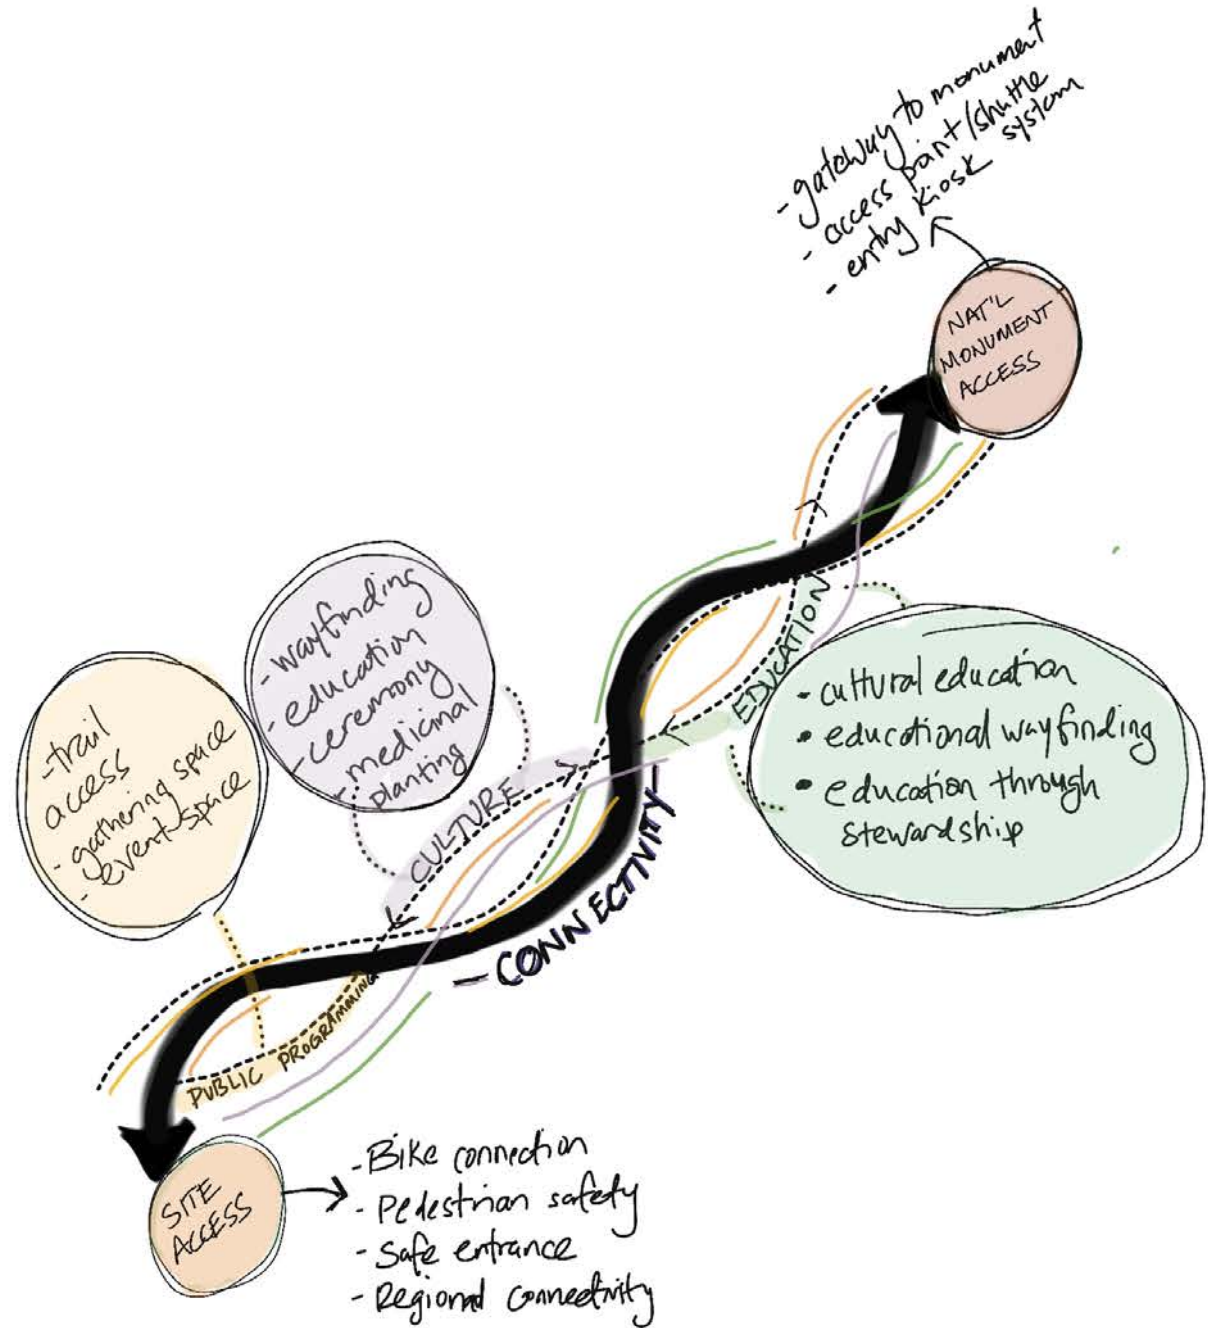 - gateway to monument
- access point/shuttle
system
- entry kiosk
NAT'L
MONUMENT
ACCESS
- wayfinding
- education
- ceremony
- medicinal
planting
- trail
access
- gathering space
- event space
EDUCATION
- cultural education
• educational wayfinding
• education through
stewardship
CULTURE
- CONNECTIVITY -
PUBLIC PROGRAMMING
SITE
ACCESS
- Bike connection
- Pedestrian safety
- Safe entrance
- Regional connectivity